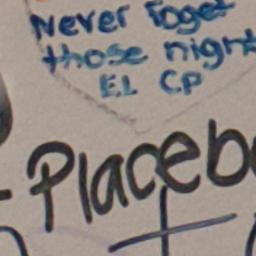 Never Foget
those night
EL CP
Placeb